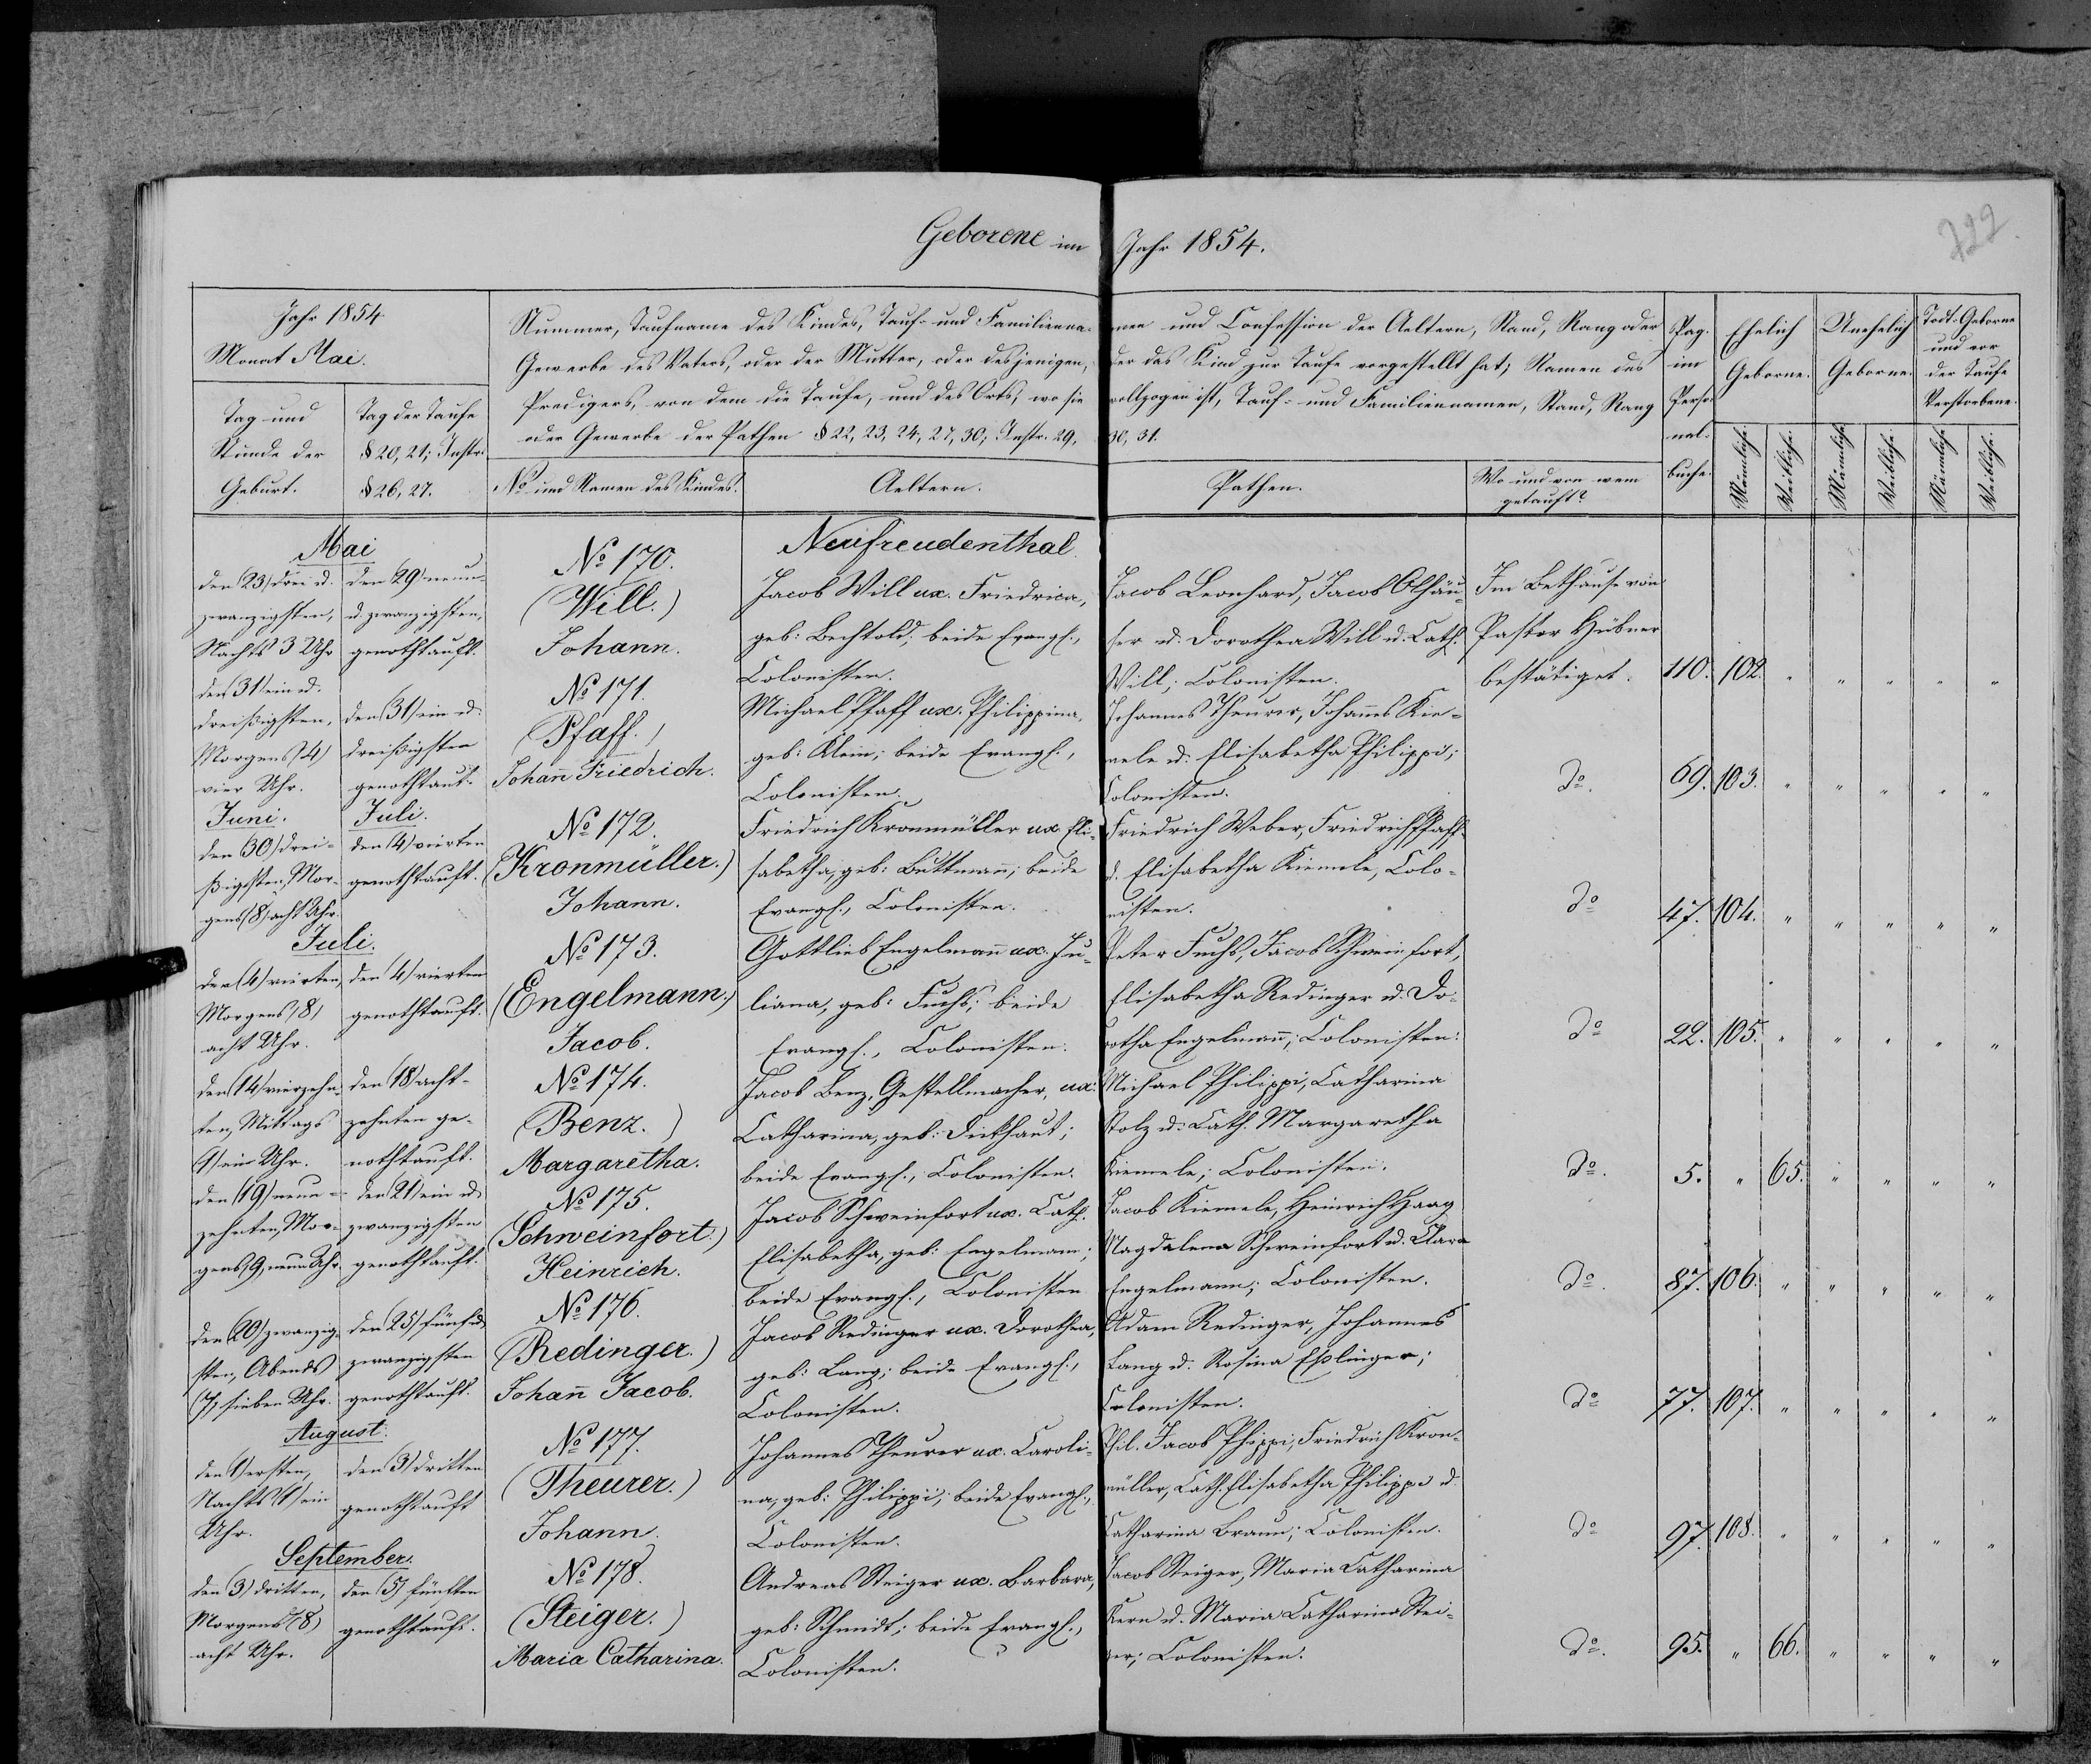 Geborene im Jahr 1854.
722
Jahr 1854
Monat Mai.
Tag und
Stunde der
Geburt.
Tag der Taufe
§ 20, 21; Instr.
§ 26, 27.
Nummer, Taufname des Kindes, Tauf- und Familienna-
men und Confession der Aeltern, Stand, Rang oder
Gewerbe des Vaters, oder der Mutter, oder desjenigen,
der das Kind zur Taufe vorgestellt hat; Namen des
Predigers, von dem die Taufe, und des Orts, wo sie
vollzogen ist, Tauf- und Familiennamen, Stand, Rang
oder Gewerbe der Pathen § 22, 23, 24, 27, 30; Instr. 29,
30, 31.
No und Namen des Kindes.
Aeltern.
Pathen.
Wo und von wem
getauft?
Pag.
im
Perso-
nal-
buche.
Ehelich
Geborne.
Unehelich
Geborne.
Todt-Geborne
und vor
der Taufe
Verstorbene.
Männliche.
Weibliche.
Männliche.
Weibliche.
Männliche.
Weibliche.
Neufreudenthal.
Mai
den (23) drei u.
zwanzigsten,
Nachts 3 Uhr
den (29) neun-
u. zwanzigsten,
genothtauft.
No 170.
(Will.)
Johann.
Jacob Will ux. Friedrica,
geb: Bechtold; beide Evangl.,
Colonisten.
Jacob Leonhard, Jacob Ohlhäu-
ser u. Dorothea Will u. Cath.
Will; Colonisten.
Im Bethause von
Pastor Hübner
bestätiget.
110. 102. " " " " "
den 31) ein u.
dreißigsten,
Morgens (4)
vier Uhr.
den (31) ein u.
dreißigsten
genothtauft.
No 171.
(Pfaff.)
Johann Friedrich.
Michael Pfaff ux. Philippina,
geb: Klein; beide Evangl.,
Colonisten.
Johannes Theurer, Johannes Kie-
mele u. Elisabetha Philippi;
Colonisten.
do.
69. 103. " " " " "
Juni.
den (30) drei-
ßigsten, Mor-
gens (8) acht Uhr.
Juli.
den (4) vierten
genothtauft.
No 172.
(Kronmüller.)
Johann.
Friedrich Kronmüller ux Eli-
sabetha, geb: Buttmann; beide
Evangl., Colonisten.
Friedrich Weber, Friedrich Pfaff
u. Elisabetha Kiemele, Colo-
nisten.
do
47. 104. " " " " "
Juli.
den (4) vierten,
Morgens (8)
acht Uhr.
den (4) vierten
genothtauft.
No 173.
(Engelmann.)
Jacob.
Gottlieb Engelmann ux. Ju-
liana, geb: Fuchs; beide
Evangl., Colonisten.
Peter Fuchs, Jacob Schweinfort,
Elisabetha Redinger u. Do-
rotha Engelmann; Colonisten.
do
22. 105. " " " " "
den (14) vierzehn-
ten, Mittags
(1) ein Uhr.
den (18) acht-
zehnten ge-
nothtauft.
No 174.
(Benz.)
Margaretha.
Jacob Benz, Gestellmacher, ux:
Catharina, geb: Dickhaut;
beide Evangl., Colonisten.
Michael Philippi, Catharina
Stolz u. Cath. Margaretha
Kiemele; Colonisten.
do.
5. " 65. " " " "
den (19) neun-
zehnten, Mor-
gens (9) neun Uhr.
den 21) ein u.
zwanzigsten
genothtauft.
No 175.
(Schweinfort.)
Heinrich.
Jacob Schweinfort ux. Cath.
Elisabetha, geb: Engelmann;
beide Evangl., Colonisten
Jacob Kiemele, Heinrich Haag
Magdalena Schweinfort u. Clara
Engelmann; Colonisten.
do.
87. 106. " " " " "
den (20) zwanzig-
sten, Abends
(7) sieben Uhr.
den (25) fünf u.
zwanzigsten
genothtauft.
No 176.
(Redinger.)
Johann Jacob.
Jacob Redinger ux. Dorothea,
geb: Lang; beide Evangl.,
Colonisten.
Adam Redinger, Johannes
Lang u. Rosina Eßlinger;
Colonisten.
do
77. 107. " " " " "
August.
den (1) ersten,
Nachts (1) ein
Uhr.
den (3) dritten
genothtauft
No 177.
(Theurer.)
Johann.
Johannes Theurer ux. Caroli-
na, geb: Philippi; beide Evangl.,
Colonisten.
Phil. Jacob Phippi, Friedrich Kron-
müller, Cath. Elisabetha Philippi u.
Catharina Braun; Colonisten.
do
97. 108. " " " " "
September.
den (3) dritten,
Morgens (8)
acht Uhr.
den (5) fünften
genothtauft.
No 178.
(Steiger.)
Maria Catharina.
Andreas Steiger ux. Barbara,
geb: Schmidt; beide Evangl.,
Colonisten.
Jacob Steiger, Maria Catharina
Kern u. Maria Catharina Stei-
ger; Colonisten.
do.
95. " 66. " " " "